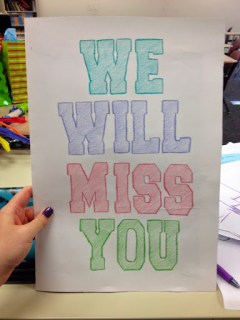 WE
WILL
MISS
YOU